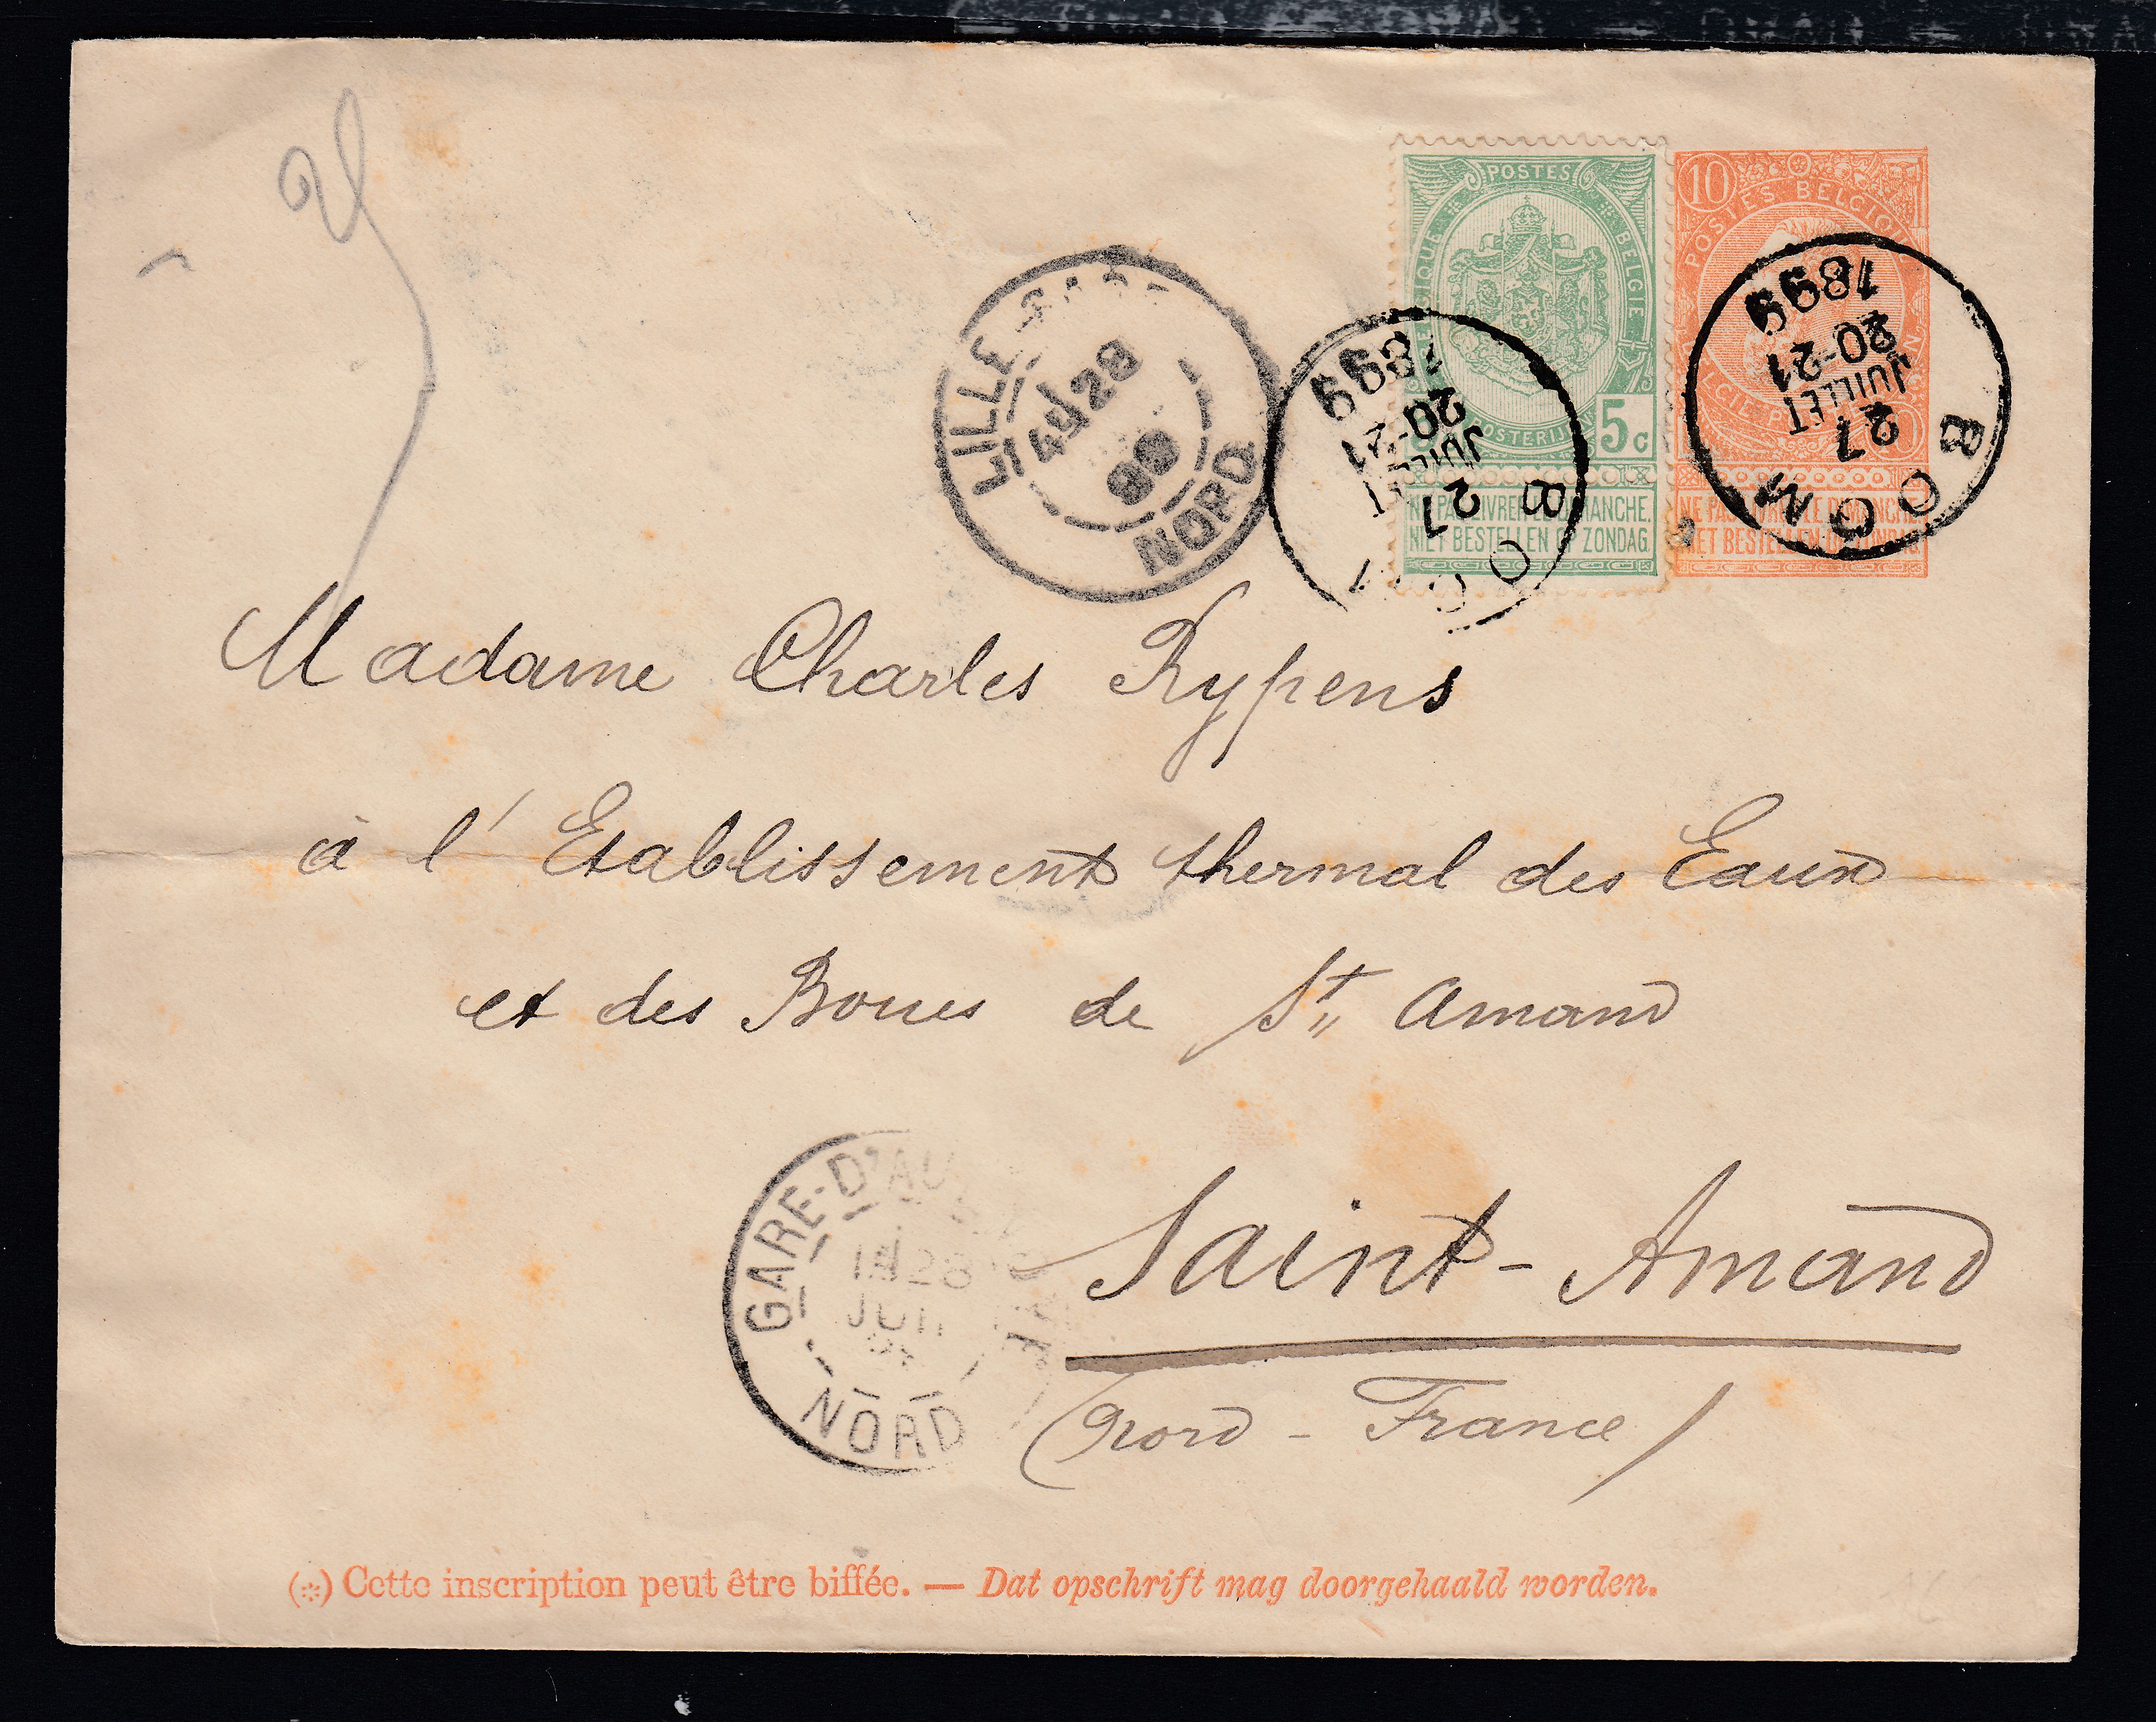 POSTES
BELGIQUE BELGIE
5c
NE PAS LIVRER LE DIMANCHE.
NIET BESTELLEN OP ZONDAG.
10
POSTES BELGIQUE
NE PAS LIVRER LE DIMANCHE.
NIET BESTELLEN OP ZONDAG.
BOOM
27
JUILLET
20-21
1899
BOOM
27
JUILLET
20-21
1899
LILLE-GARE
28
99
NORD
Madame Charles Rypens
à l'Etablissement thermal des Eaux
et des Boues de St Amand
Saint-Amand
(Nord - France)
GARE-D'AU
28
JUIL
NORD
(*) Cette inscription peut être biffée. — Dat opschrift mag doorgehaald worden.